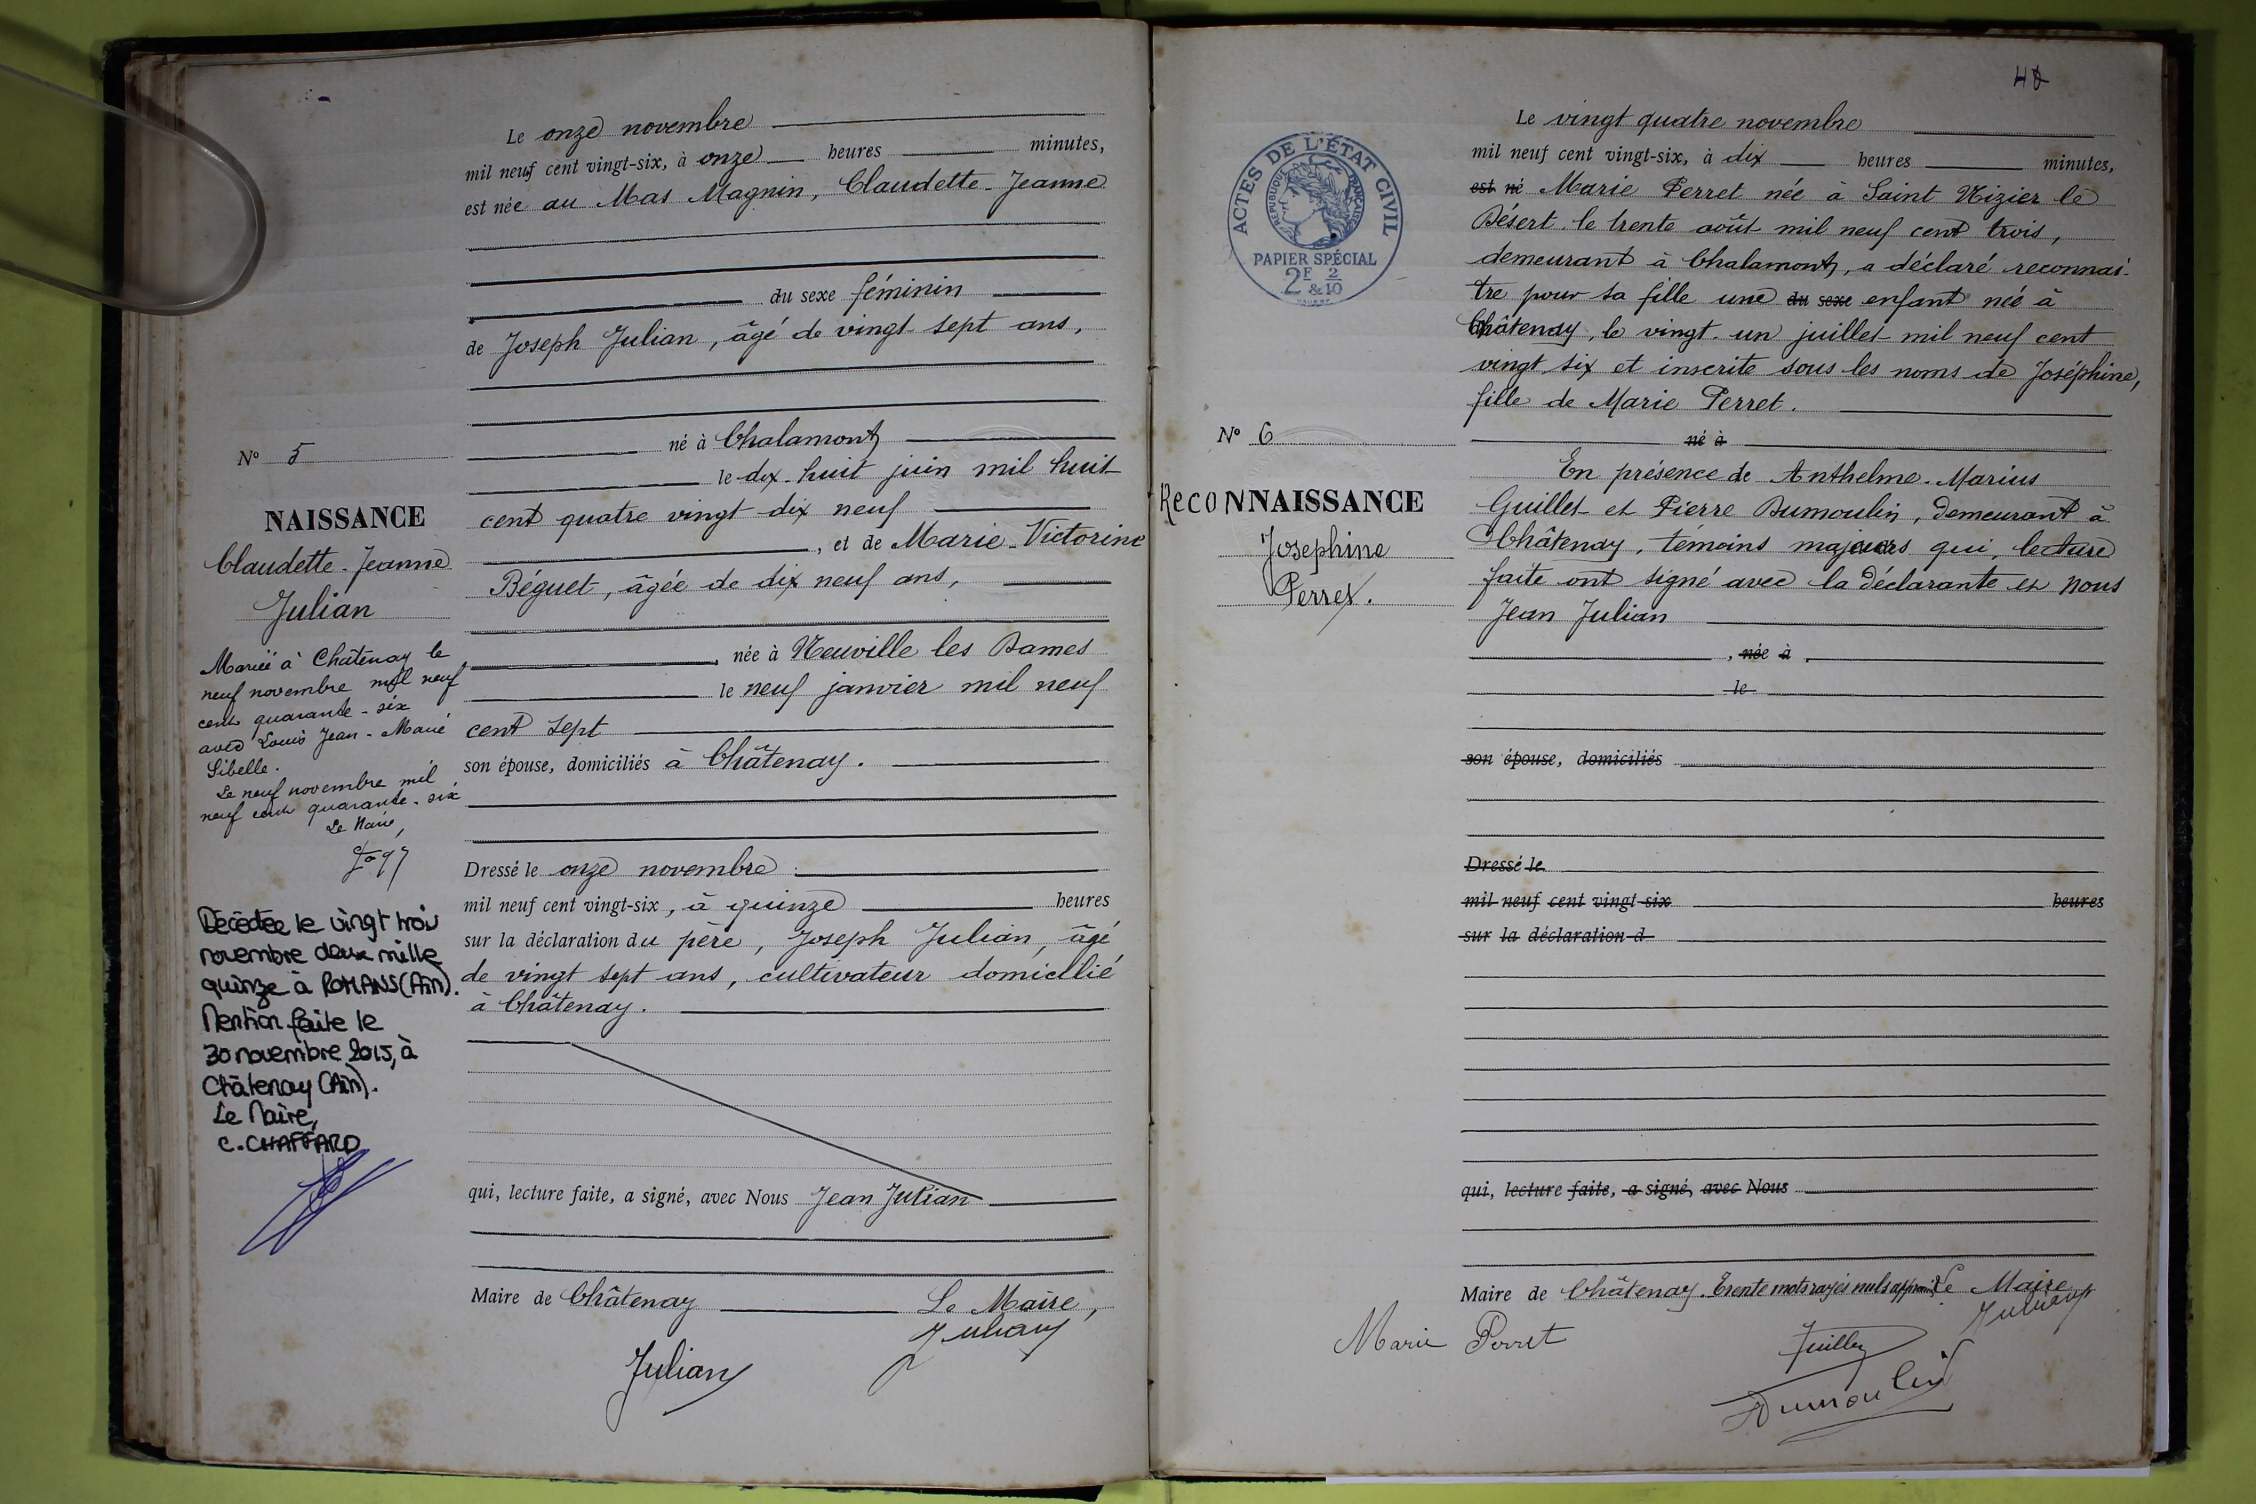 Le onze novembre
mil neuf cent vingt-six, à onze heures minutes,
est née au Mas Magnin, Claudette-Jeanne
du sexe féminin
de Joseph Julian, âgé de vingt-sept ans,
né à Chalamont
le dix-huit juin mil huit
cent quatre vingt-dix neuf
, et de Marie-Victorine
Béguet, âgée de dix neuf ans,
, née à Neuville les Dames
le neuf janvier mil neuf
cent sept
son épouse, domiciliés à Châtenay.
Dressé le onze novembre
mil neuf cent vingt-six, à quinze heures
sur la déclaration du père, Joseph Julian, âgé
de vingt sept ans, cultivateur domicilié
à Châtenay.
qui, lecture faite, a signé, avec Nous Jean Julian
Maire de Châtenay Le Maire,
Julian
Julian
N° 5
NAISSANCE
Claudette-Jeanne
Julian
Mariée à Châtenay le
neuf novembre mil neuf
cent quarante-six
avec Louis Jean-Marie
Sibelle.
Le neuf novembre mil
neuf cent quarante-six
Le Maire,
Décédée le vingt trois
novembre deux mille
quinze à ROMANS (Ain).
Mention faite le
30 novembre 2015, à
Châtenay (Ain).
Le Maire,
C. CHAFFARD
ACTES DE L'ÉTAT CIVIL
RÉPUBLIQUE FRANÇAISE
PAPIER SPÉCIAL
2F & 2/10
N° 6
RECONNAISSANCE
Josephine
Perret.
Le vingt quatre novembre
mil neuf cent vingt-six, à dix heures minutes,
est né Marie Perret née à Saint Nizier le
Désert le trente août mil neuf cent trois,
demeurant à Chalamont, a déclaré reconnaî-
tre pour sa fille une du sexe enfant née à
Châtenay, le vingt-un juillet mil neuf cent
vingt six et inscrite sous les noms de Joséphine,
fille de Marie Perret.
né à
En présence de Anthelme-Marius
Guillet et Pierre Dumoulin, demeurant à
Châtenay, témoins majeurs qui, lecture
faite ont signé avec la déclarante et nous
Jean Julian
, née à
le
son épouse, domiciliés
Dressé le
mil neuf cent vingt-six heures
sur la déclaration d
qui, lecture faite, a signé, avec Nous
Maire de Châtenay. Trente mots rayés nuls Le Maire
Julian
Marie Perret
Guillet
Dumoulin